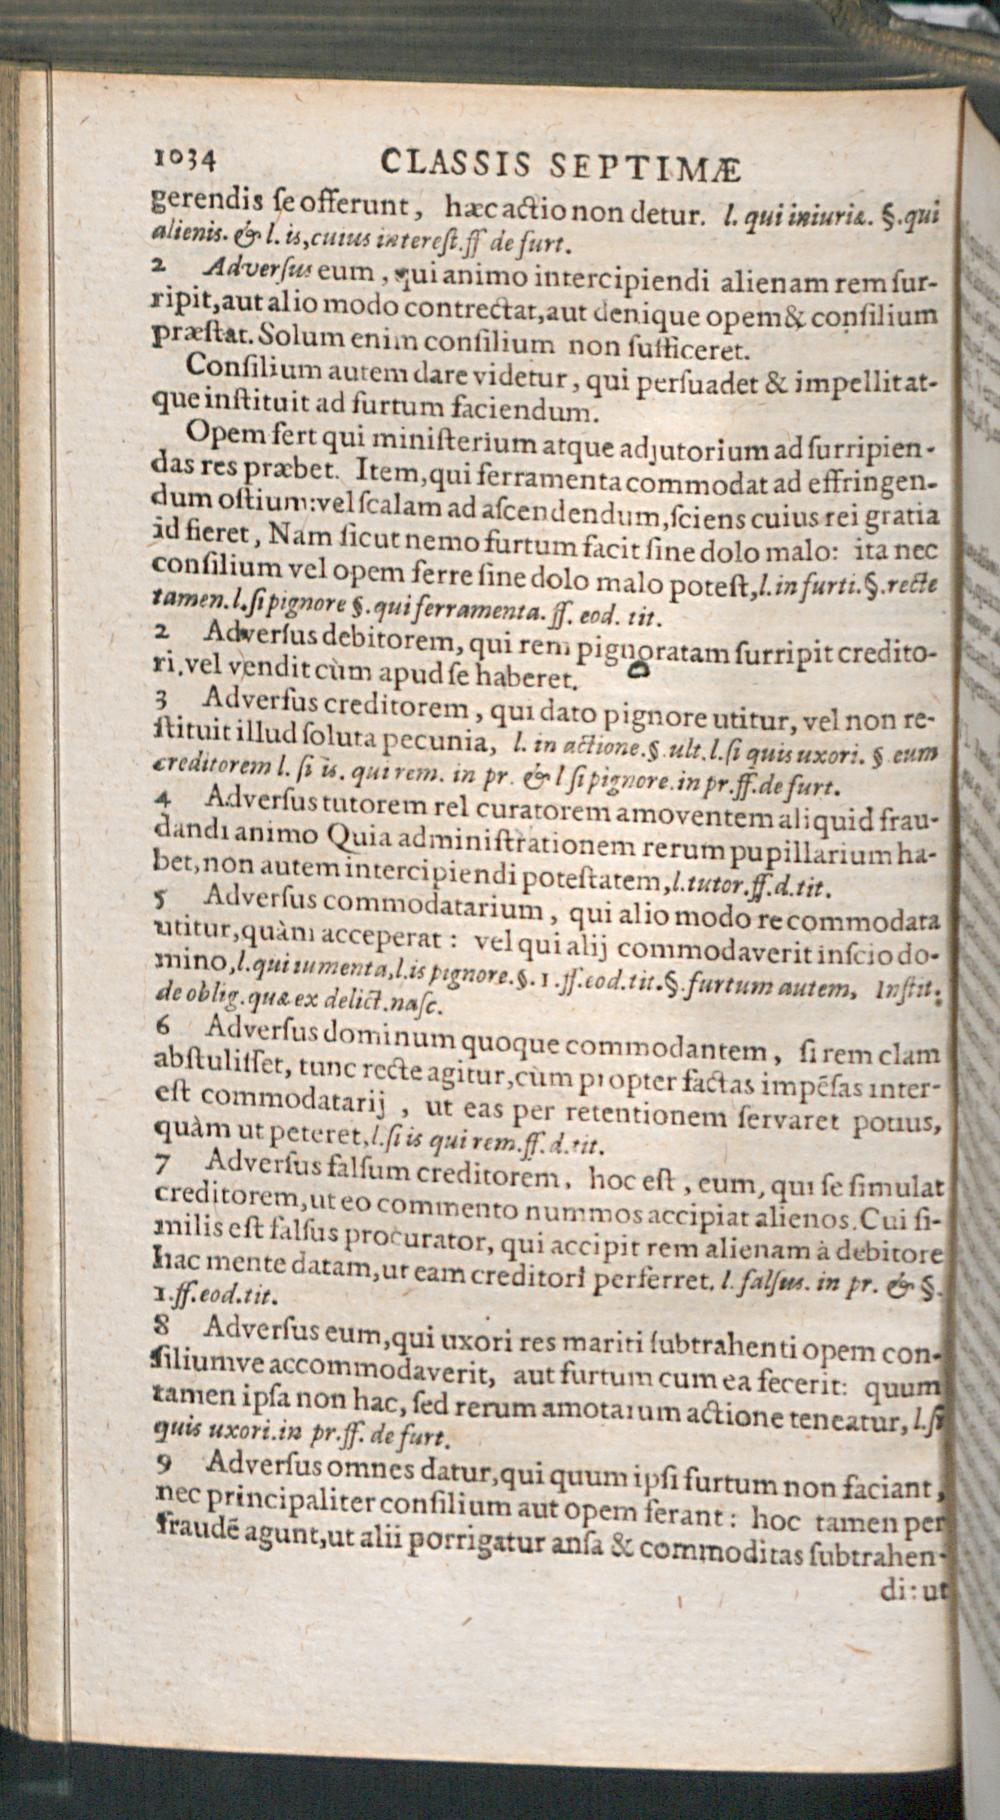 1034 CLASSIS SEPTIMÆ
gerendis ſe offerunt, hæc actio non detur. l. qui iniuriæ. §. qui
alienis. & l. is, cuius intereſt. ff de furt.
2 Adverſus eum, qui animo intercipiendi alienam rem ſur-
ripit, aut alio modo contrectat, aut denique opem & conſilium
præſtat. Solum enim conſilium non ſufficeret.
Conſilium autem dare videtur, qui perſuadet & impellit at-
que inſtituit ad furtum faciendum.
Opem fert qui miniſterium atque adjutorium ad ſurripien-
das res præbet. Item, qui ferramenta commodat ad effringen-
dum oſtium: vel ſcalam ad aſcendendum, ſciens cuius rei gratia
id fieret, Nam ſicut nemo furtum facit ſine dolo malo: ita nec
conſilium vel opem ferre ſine dolo malo poteſt, l. in furti. §. recte
tamen. l. ſi pignore §. qui ferramenta. ff. eod. tit.
2 Adverſus debitorem, qui rem pignoratam ſurripit credito-
ri. vel vendit cùm apud ſe haberet.
3 Adverſus creditorem, qui dato pignore utitur, vel non re-
ſtituit illud ſoluta pecunia, l. in actione. §. ult. l. ſi quis uxori. § eum
creditorem l. ſi is. qui rem. in pr. & l ſi pignore. in pr. ff. de furt.
4 Adverſus tutorem rel curatorem amoventem aliquid frau-
dandi animo Quia adminiſtrationem rerum pupillarium ha-
bet, non autem intercipiendi poteſtatem, l. tutor. ff. d. tit.
5 Adverſus commodatarium, qui alio modo re commodata
utitur, quàm acceperat: vel qui alij commodaverit inſcio do-
mino, l. qui iumenta, l. is pignore. §. 1. ff. eod. tit. §. furtum autem, Inſtit:
de oblig. quæ ex delict. naſc.
6 Adverſus dominum quoque commodantem, ſi rem clam
abſtuliſſet, tunc recte agitur, cùm propter factas impēſas inter-
eſt commodatarij, ut eas per retentionem ſervaret potius,
quàm ut peteret, l. ſi is qui rem. ff. d. tit.
7 Adverſus falſum creditorem, hoc eſt, eum, qui ſe ſimulat
creditorem, ut eo commento nummos accipiat alienos. Cui ſi-
milis eſt falſus procurator, qui accipit rem alienam à debitore
hac mente datam, ut eam creditori perferret. l. falſus. in pr. & §.
1. ff. eod. tit.
8 Adverſus eum, qui uxori res mariti ſubtrahenti opem con-
ſiliumve accommodaverit, aut furtum cum ea fecerit: quum
tamen ipſa non hac, ſed rerum amotarum actione teneatur, l. ſi
quis uxori. in pr. ff. de furt.
9 Adverſus omnes datur, qui quum ipſi furtum non faciant,
nec principaliter conſilium aut opem ferant: hoc tamen per
fraudē agunt, ut alii porrigatur anſa & commoditas ſubtrahen-
di: ut